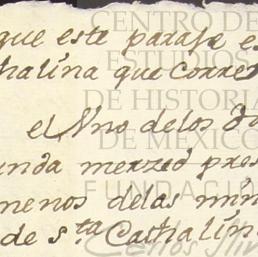 que este paraje es
thalina que corre
el Vno delos do
unda merzed pres
menos delas min
de s.ta Cathalin
CENTRO DE
ESTUDIOS
DE HISTORIA
DE MEXICO
FUNDACIÓN
Carlos Slim